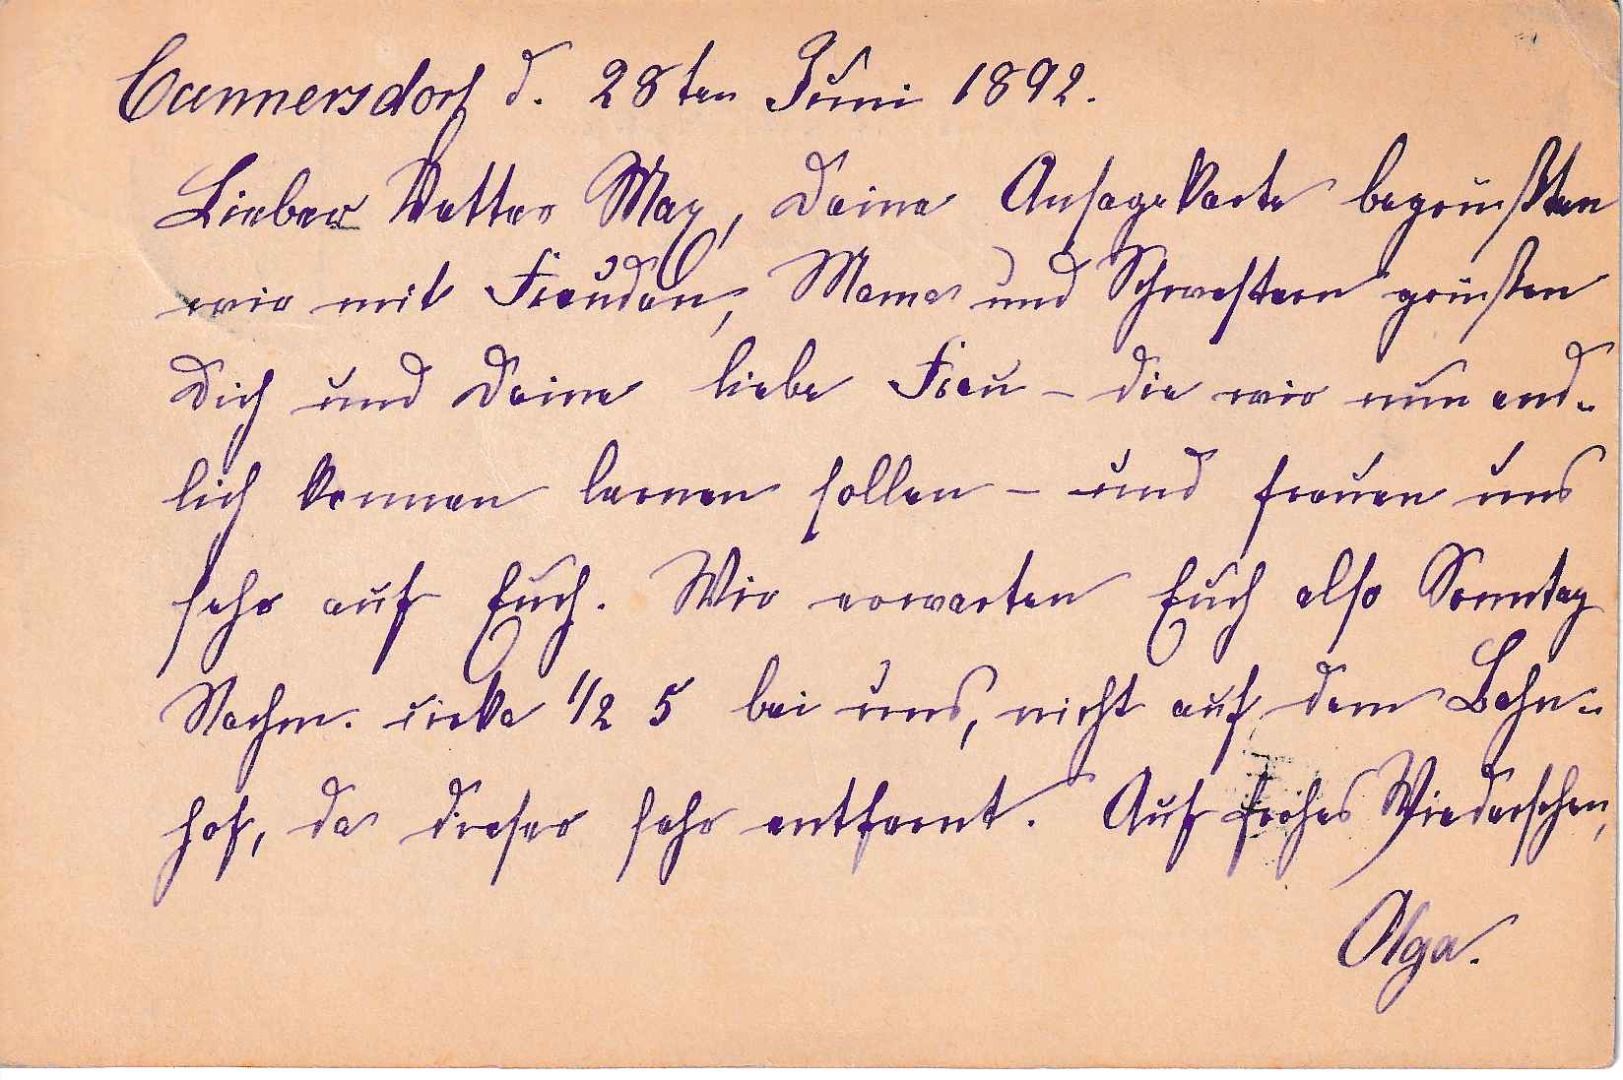 Cunnersdorf d. 28ten Juni 1892.
Lieber Vetter Max, Deine Ansagekarte begrüßten
wir mit Freuden, Mama und Schwestern grüßen
Dich und Deine liebe Frau – die wir nun end-
lich kennen lernen sollen – und freuen uns
sehr auf Euch. Wir erwarten Euch also Sonntag
Nachm. cirka 1/2 5 bei uns, nicht auf dem Bahn-
hof, da dieser sehr entfernt. Auf frohes Wiedersehen,
Olga.